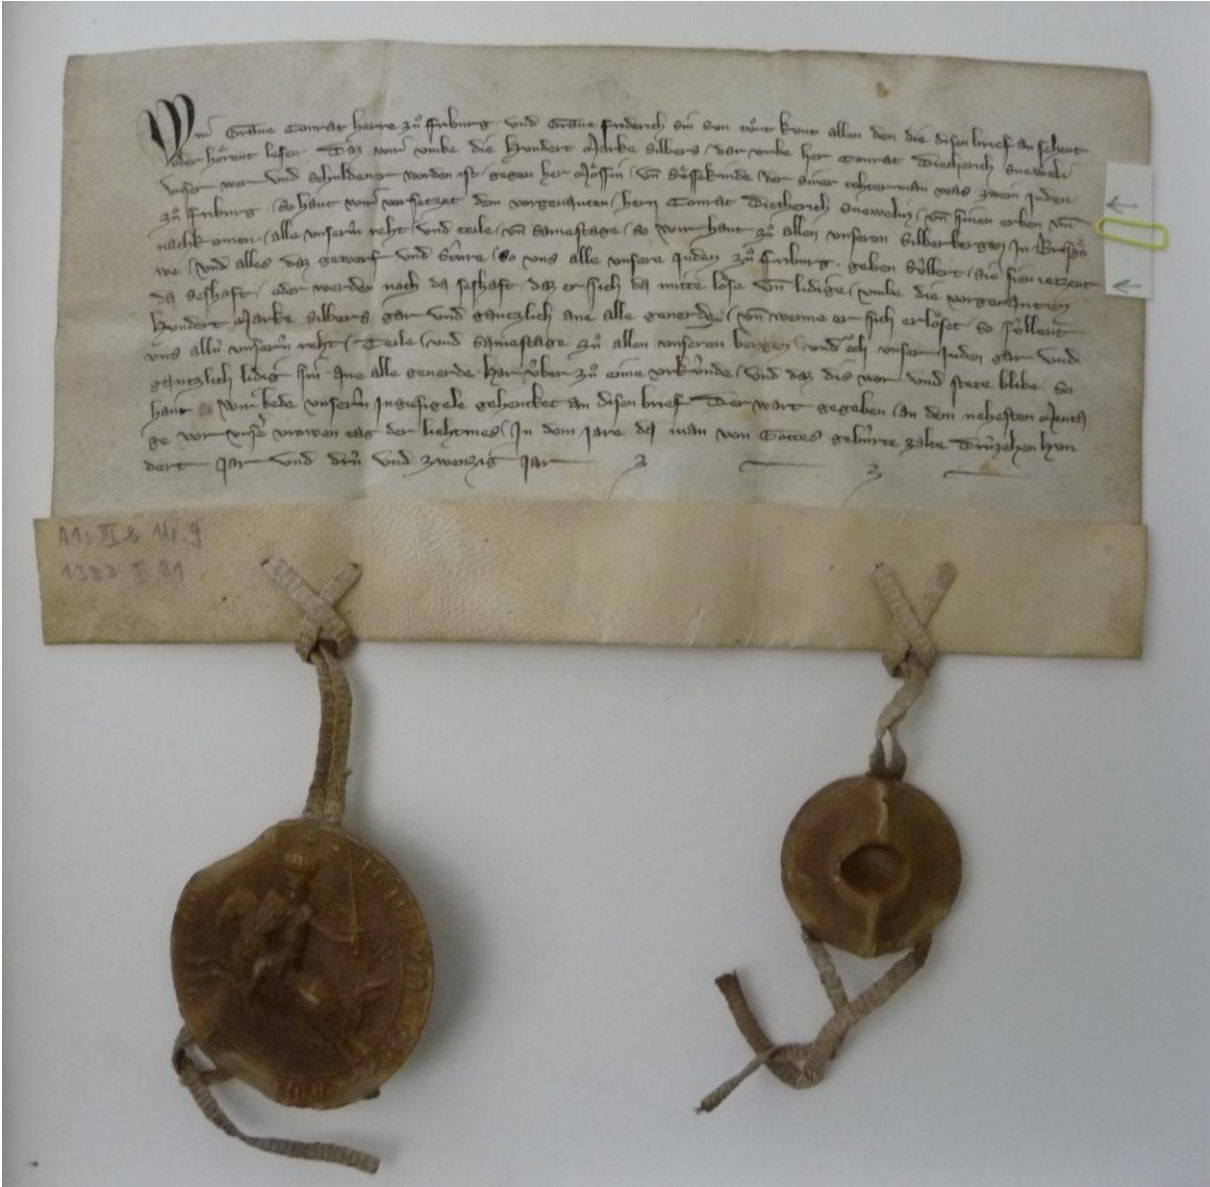 Wir Graue Conrat herre zů Friburg · vnd Graue Friderich sin sun tůnt kunt allen den die disen brief an sehent
oder hőrent lesen · Daz wir vmbe die Hundert Marke silbers / dar vmbe her Conrat Dietherich Sneweli
vnser wer vnd schuldener worden ist / gegen her Mőssin / vn̄ Sůssekinde / der siner tohterman was zwein Juden
zů Friburg · so hant wir versetzet dem vorgenanten / hern Conrat Dietherich Snewelin / vn̄ sinen erben vn̄
nachkomen / alle vnserů reht / vnd teile / vn̄ samestage / so wir hant zů allen vnseren Silberbergen / in Brisgő
we / vnd alles daz gewerf vnd Stúre / so vns alle vnsere Juden zů Friburg · geben sűllent / sie sien ietzent
da seshaft / oder werden noch da seshaft / daz er sich da mitte lőse vn̄ lidige / vmbe die vorgenanten
Hundert Marke silbers gar vnd gantzlich ane alle geuerde / vn̄ wenne er sich erlőset / so sűllent
vns allú vnserú reht / Teile / vnd samestage zů allen vnseren bergen / vnd őch vnser Juden gar vnd
gantzlich lidig sin · ane alle geuerde · Har vber zů eime vrkúnde / vnd daz dis war vnd stete blibe so
hant wir bede vnserú Ingesigele gehencket an disen brief Der wart gegeben / an dem nehesten Menta
ge vor vnser vrowen tag der liehtmes / In dem Jare da man von Gottes gebúrte zalte Drúzehen Hun
dert Jar vnd drú vnd zwenzig Jar
A1: III b Nr. 9